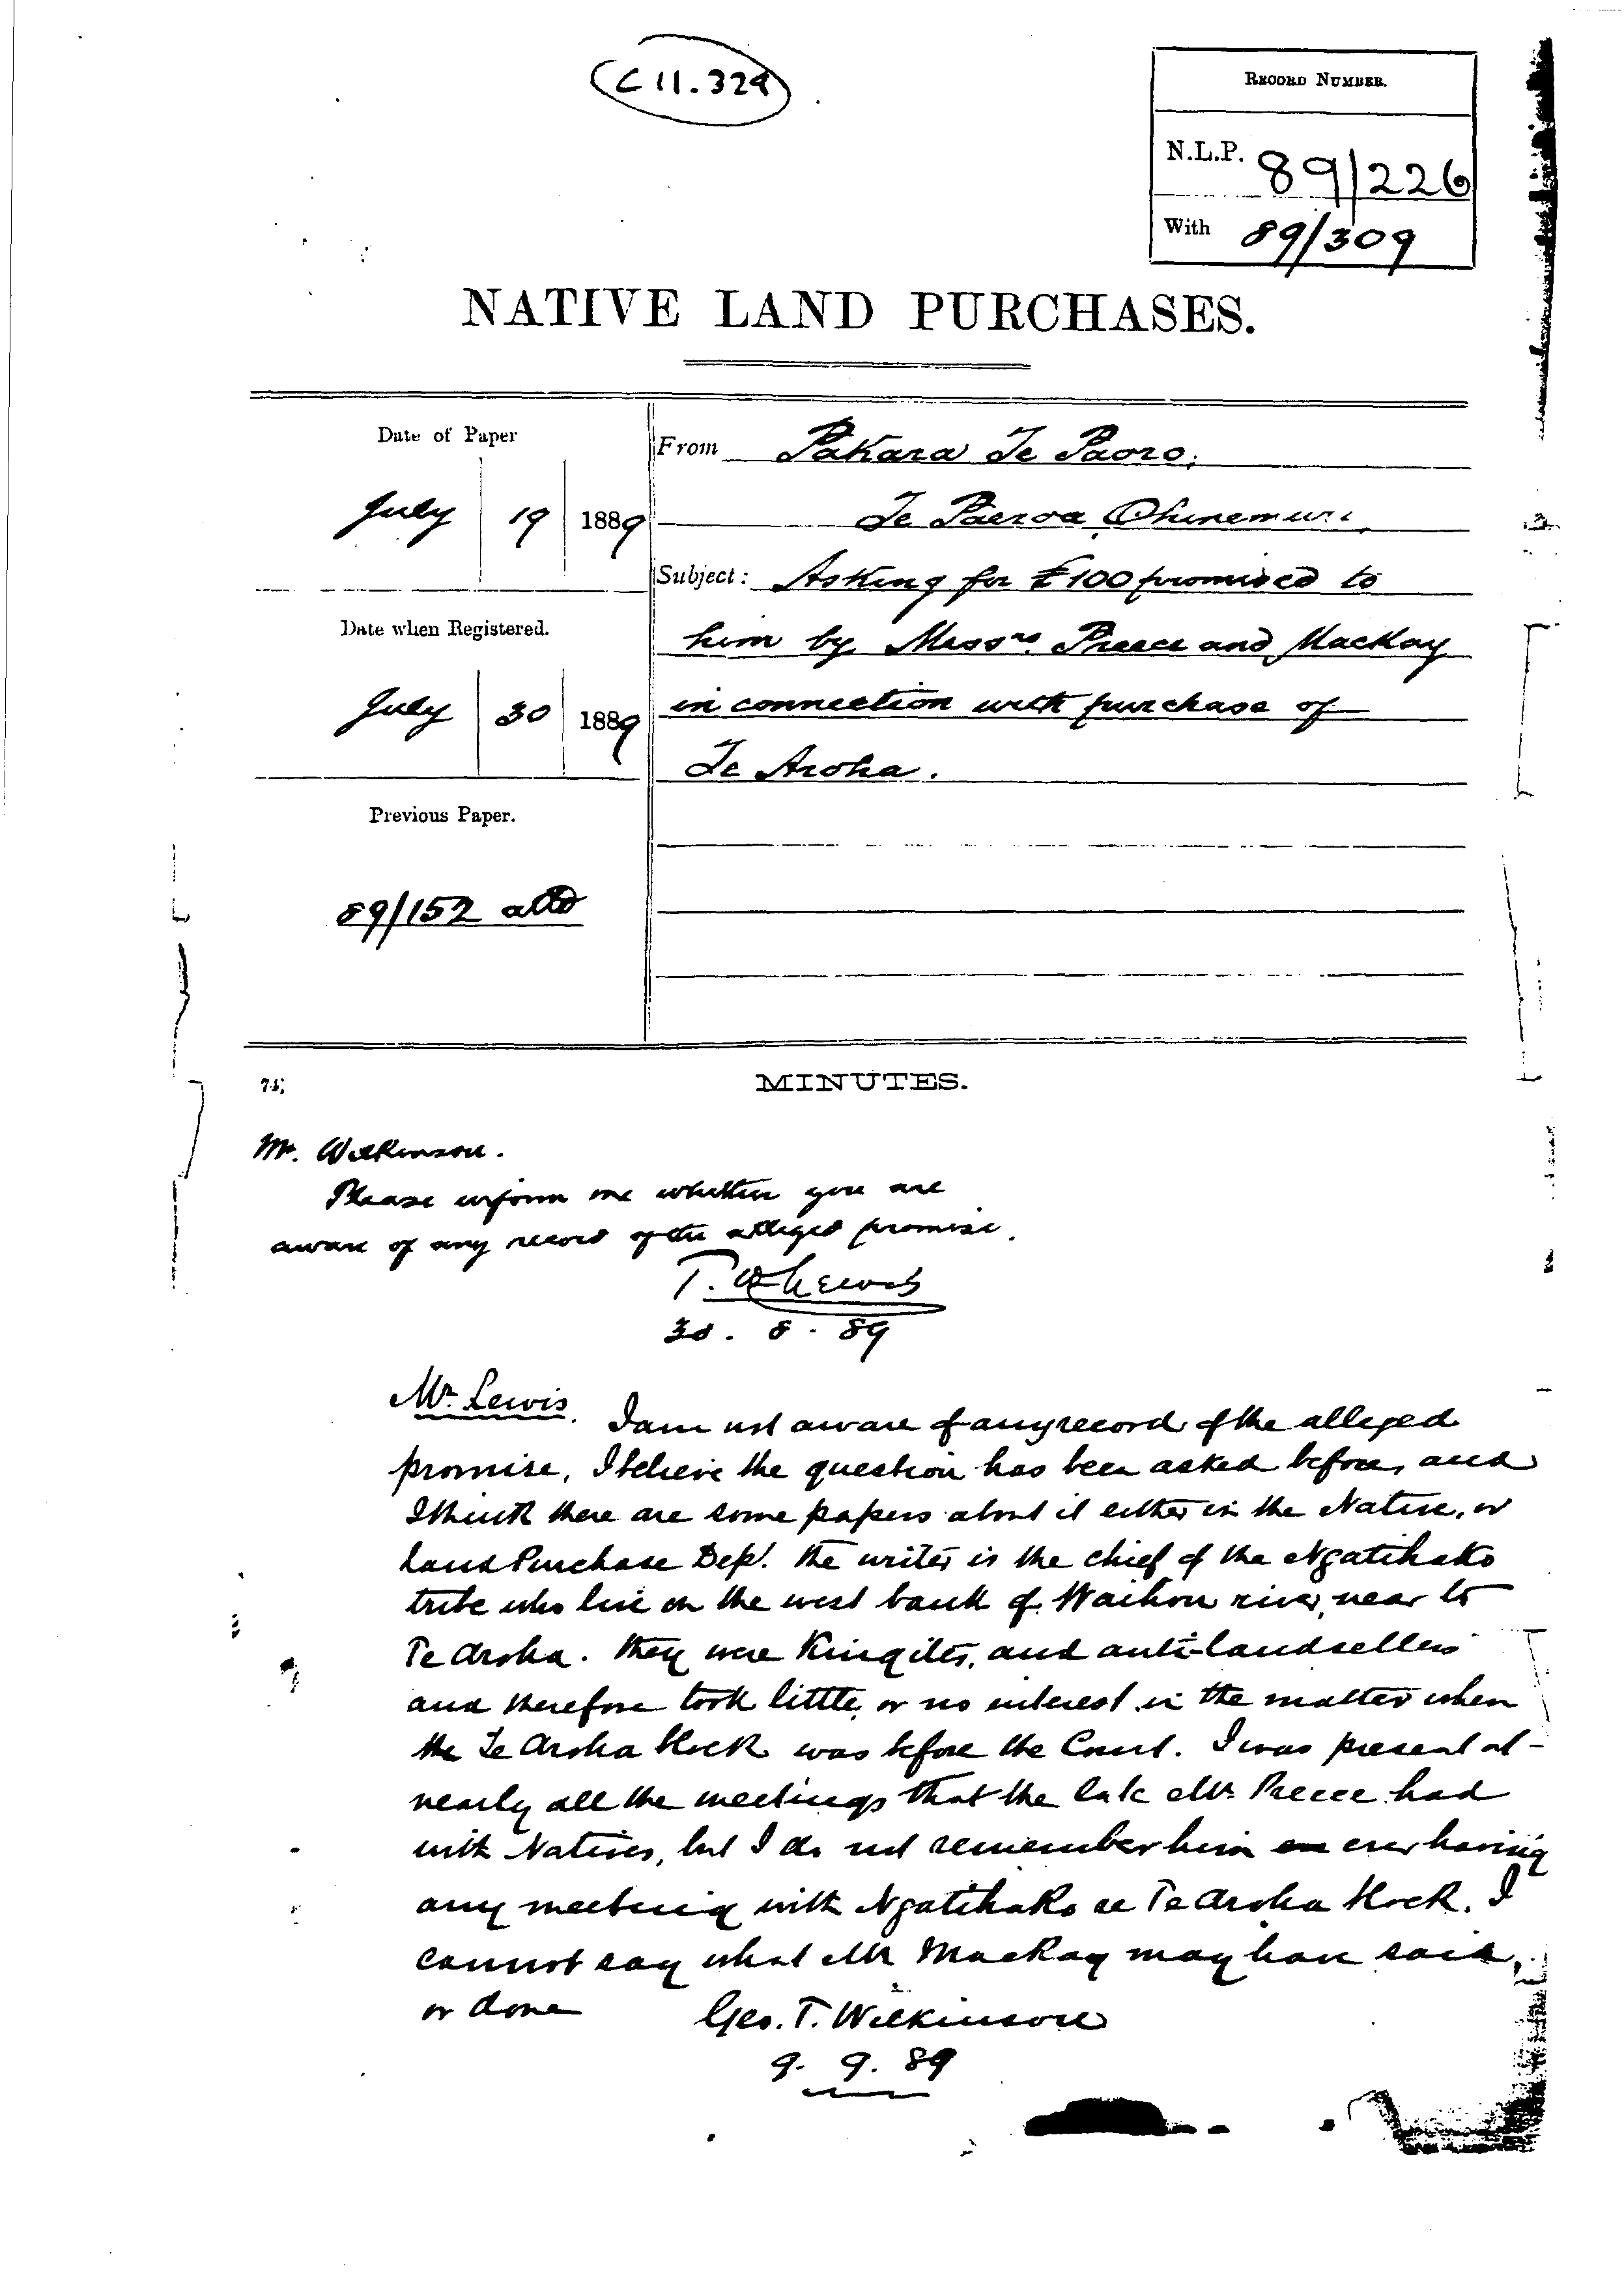 C 11.329
RECORD NUMBER.
N.L.P. 89/226
With 89/309
NATIVE LAND PURCHASES.
Date of Paper
July 19 1889
From Pakara Te Paoro,
Te Paeroa, Ohinemuri
Subject: Asking for £100 promised to
him by Messrs. Preece and Mackay
in connection with purchase of
Te Aroha.
Date when Registered.
July 30 1889
Previous Paper.
89/152 attd
MINUTES.
Mr. Wilkinson.
Please inform me whether you are
aware of any record of the alleged promise.
T. W. Lewis
30. 8. 89
Mr. Lewis. I am not aware of any record of the alleged
promise, I believe the question has been asked before, and
I think there are some papers about it either in the Native, or
Land Purchase Dept. The writer is the chief of the Ngatihako
tribe who live on the west bank of Waihou river, near to
Te Aroha. They were Kingites, and anti-landsellers
and therefore took little, or no interest in the matter when
the Te Aroha block was before the Court. I was present at
nearly all the meetings that the late Mr. Preece had
with Natives, but I do not remember him ever having
any meeting with Ngatihako re Te Aroha block. I
cannot say what Mr Mackay may have said,
or done Geo. T. Wilkinson
9. 9. 89